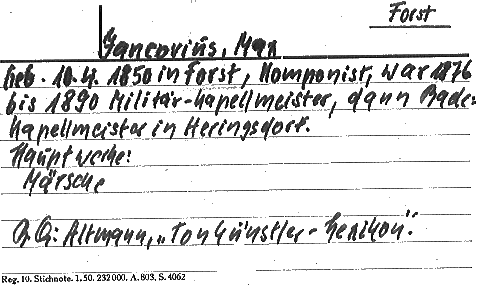 Forst
Jancovius, Max
geb. 10.4. 1850 in Forst, Komponist, war 1876
bis 1890 Militär-Kapellmeister, dann Bade=
kapellmeister in Heringsdorf.
Hauptwerke:
Märsche
Altmann, „Tonkünstler-Lexikon".
Reg. 10. Stichnote. 1. 50. 232000. A. 803. S. 4062